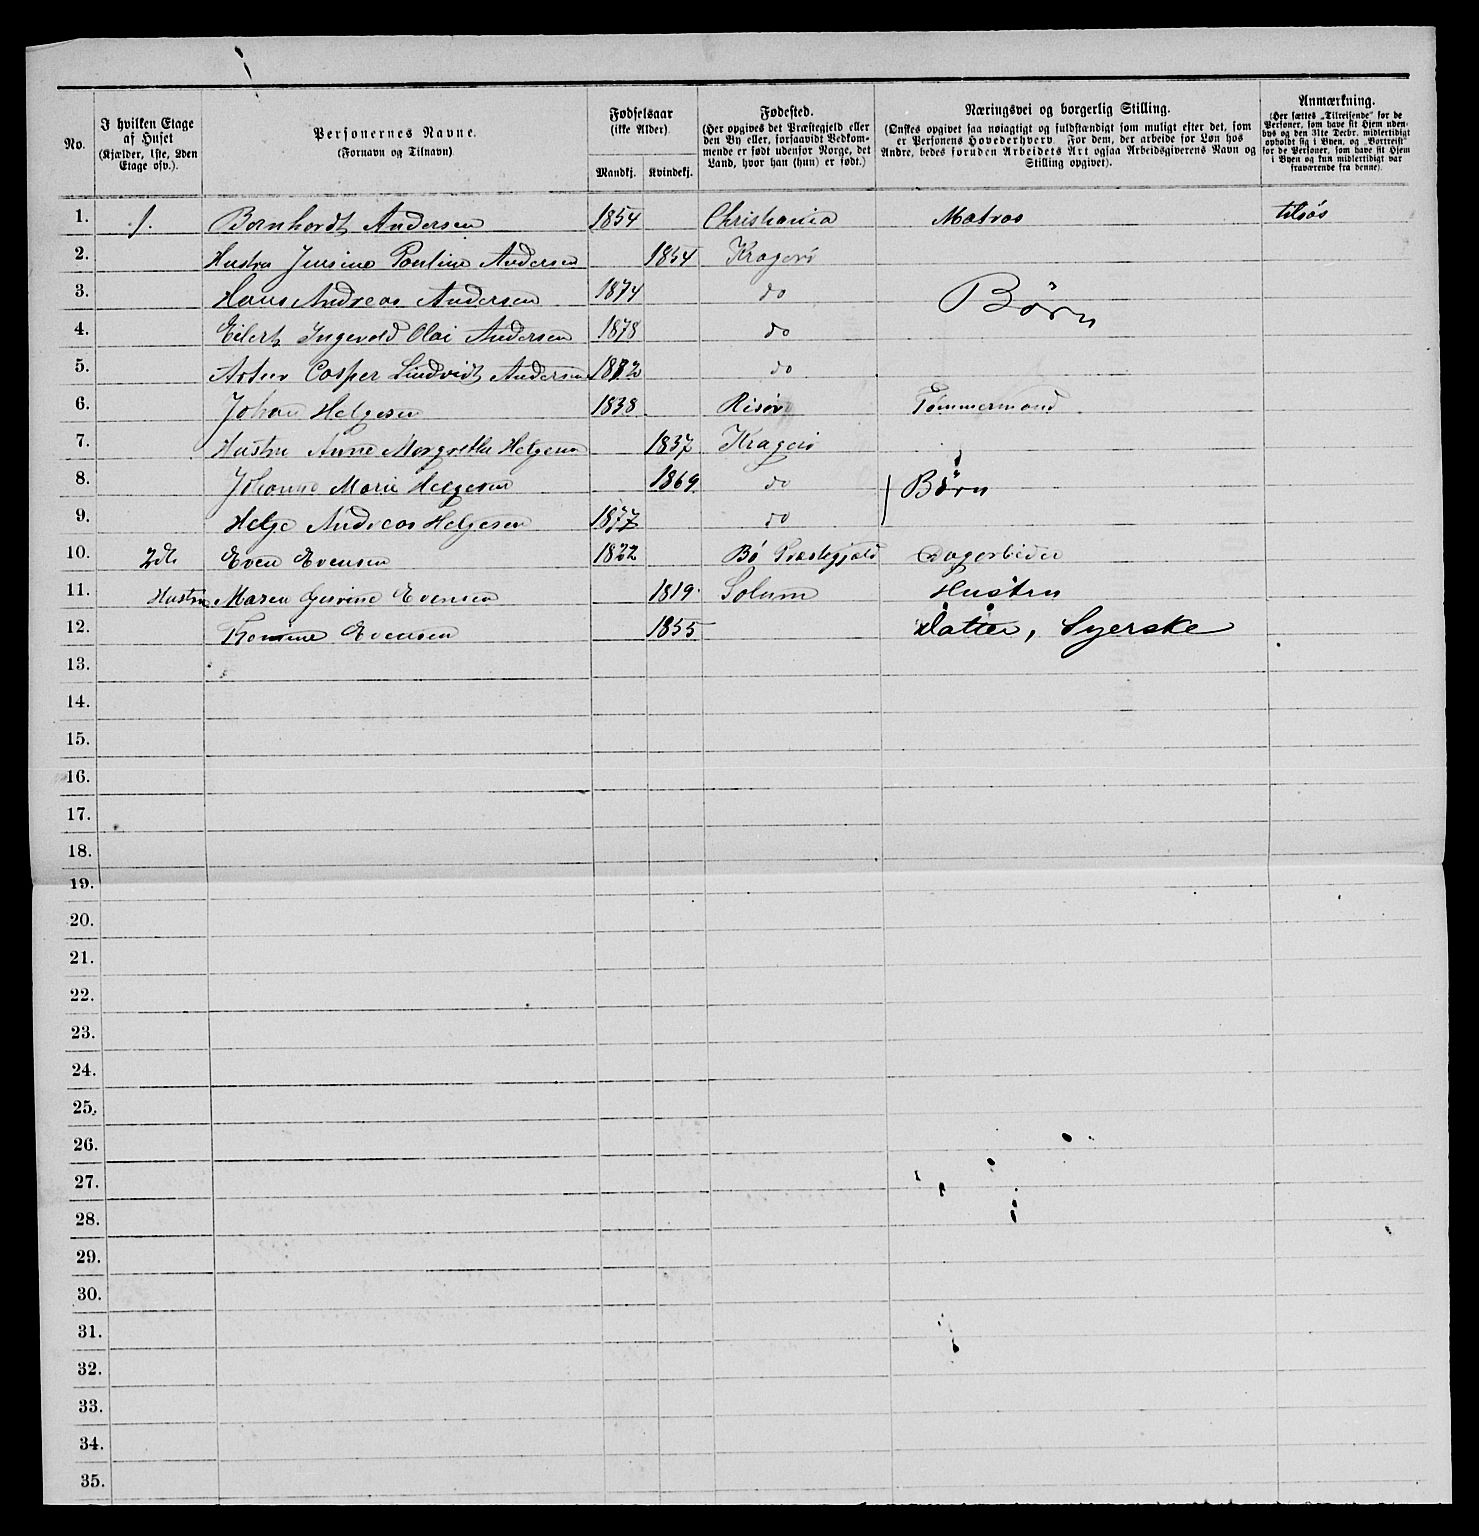 No.
I hvilken Etage af Huset (Kjælder, 1ste, 2den Etage osv.).
Personernes Navne. (Fornavn og Tilnavn)
Fødselsaar (ikke Alder).
Mandkj. Kvindekj.
Fødested. (Her opgives det Præstegjeld eller den By eller, forsaavidt Vedkommende er født udenfor Norge, det Land, hvor han (hun) er født.)
Næringsvei og borgerlig Stilling. (Ønskes opgivet saa nøiagtigt og fuldstændigt som muligt efter det, som er Personens Hovederhverv. For dem, der arbeide for Løn hos Andre, bedes foruden Arbeidets Art ogsaa Arbeidsgiverens Navn og Stilling opgivet).
Anmærkning. (Her sættes „Tilreisende" for de Personer, som have sit Hjem udenbys og den 31te Decbr. midlertidigt opholdt sig i Byen, og „Bortreist" for de Personer, som have sit Hjem i Byen og kun midlertidigt var fraværende fra denne).
1. 1. Bernhardt Andersen 1854 Christiania Matros tilsøs
2. Hustru Pauline Andersen 1854 Kragerø
3. Hans Andreas Andersen 1874 do Børn
4. Eilert Ingevald Olai Andersen 1878 do
5. Casper Lindvidt Andersen do
6. Johan Helgesen 1838 Risør Tømmermand
7. Hustru Anne Margrethe Helgesen 1837 Kragerø
8. Johanne Marie Helgesen 1869 do Børn
9. Helge Andreas Helgesen 1877 do
10. 2d Even Evensen 1822 Bø Præstegjæld Dagarbeider
11. Hustru Maren Evensen 1819 Solum Hustru
12. Evensen 1855 Datter, Syerske
13.
14.
15.
16.
17.
18.
19.
20.
21.
22.
23.
24.
25.
26.
27.
28.
29.
30.
31.
32.
33.
34.
35.